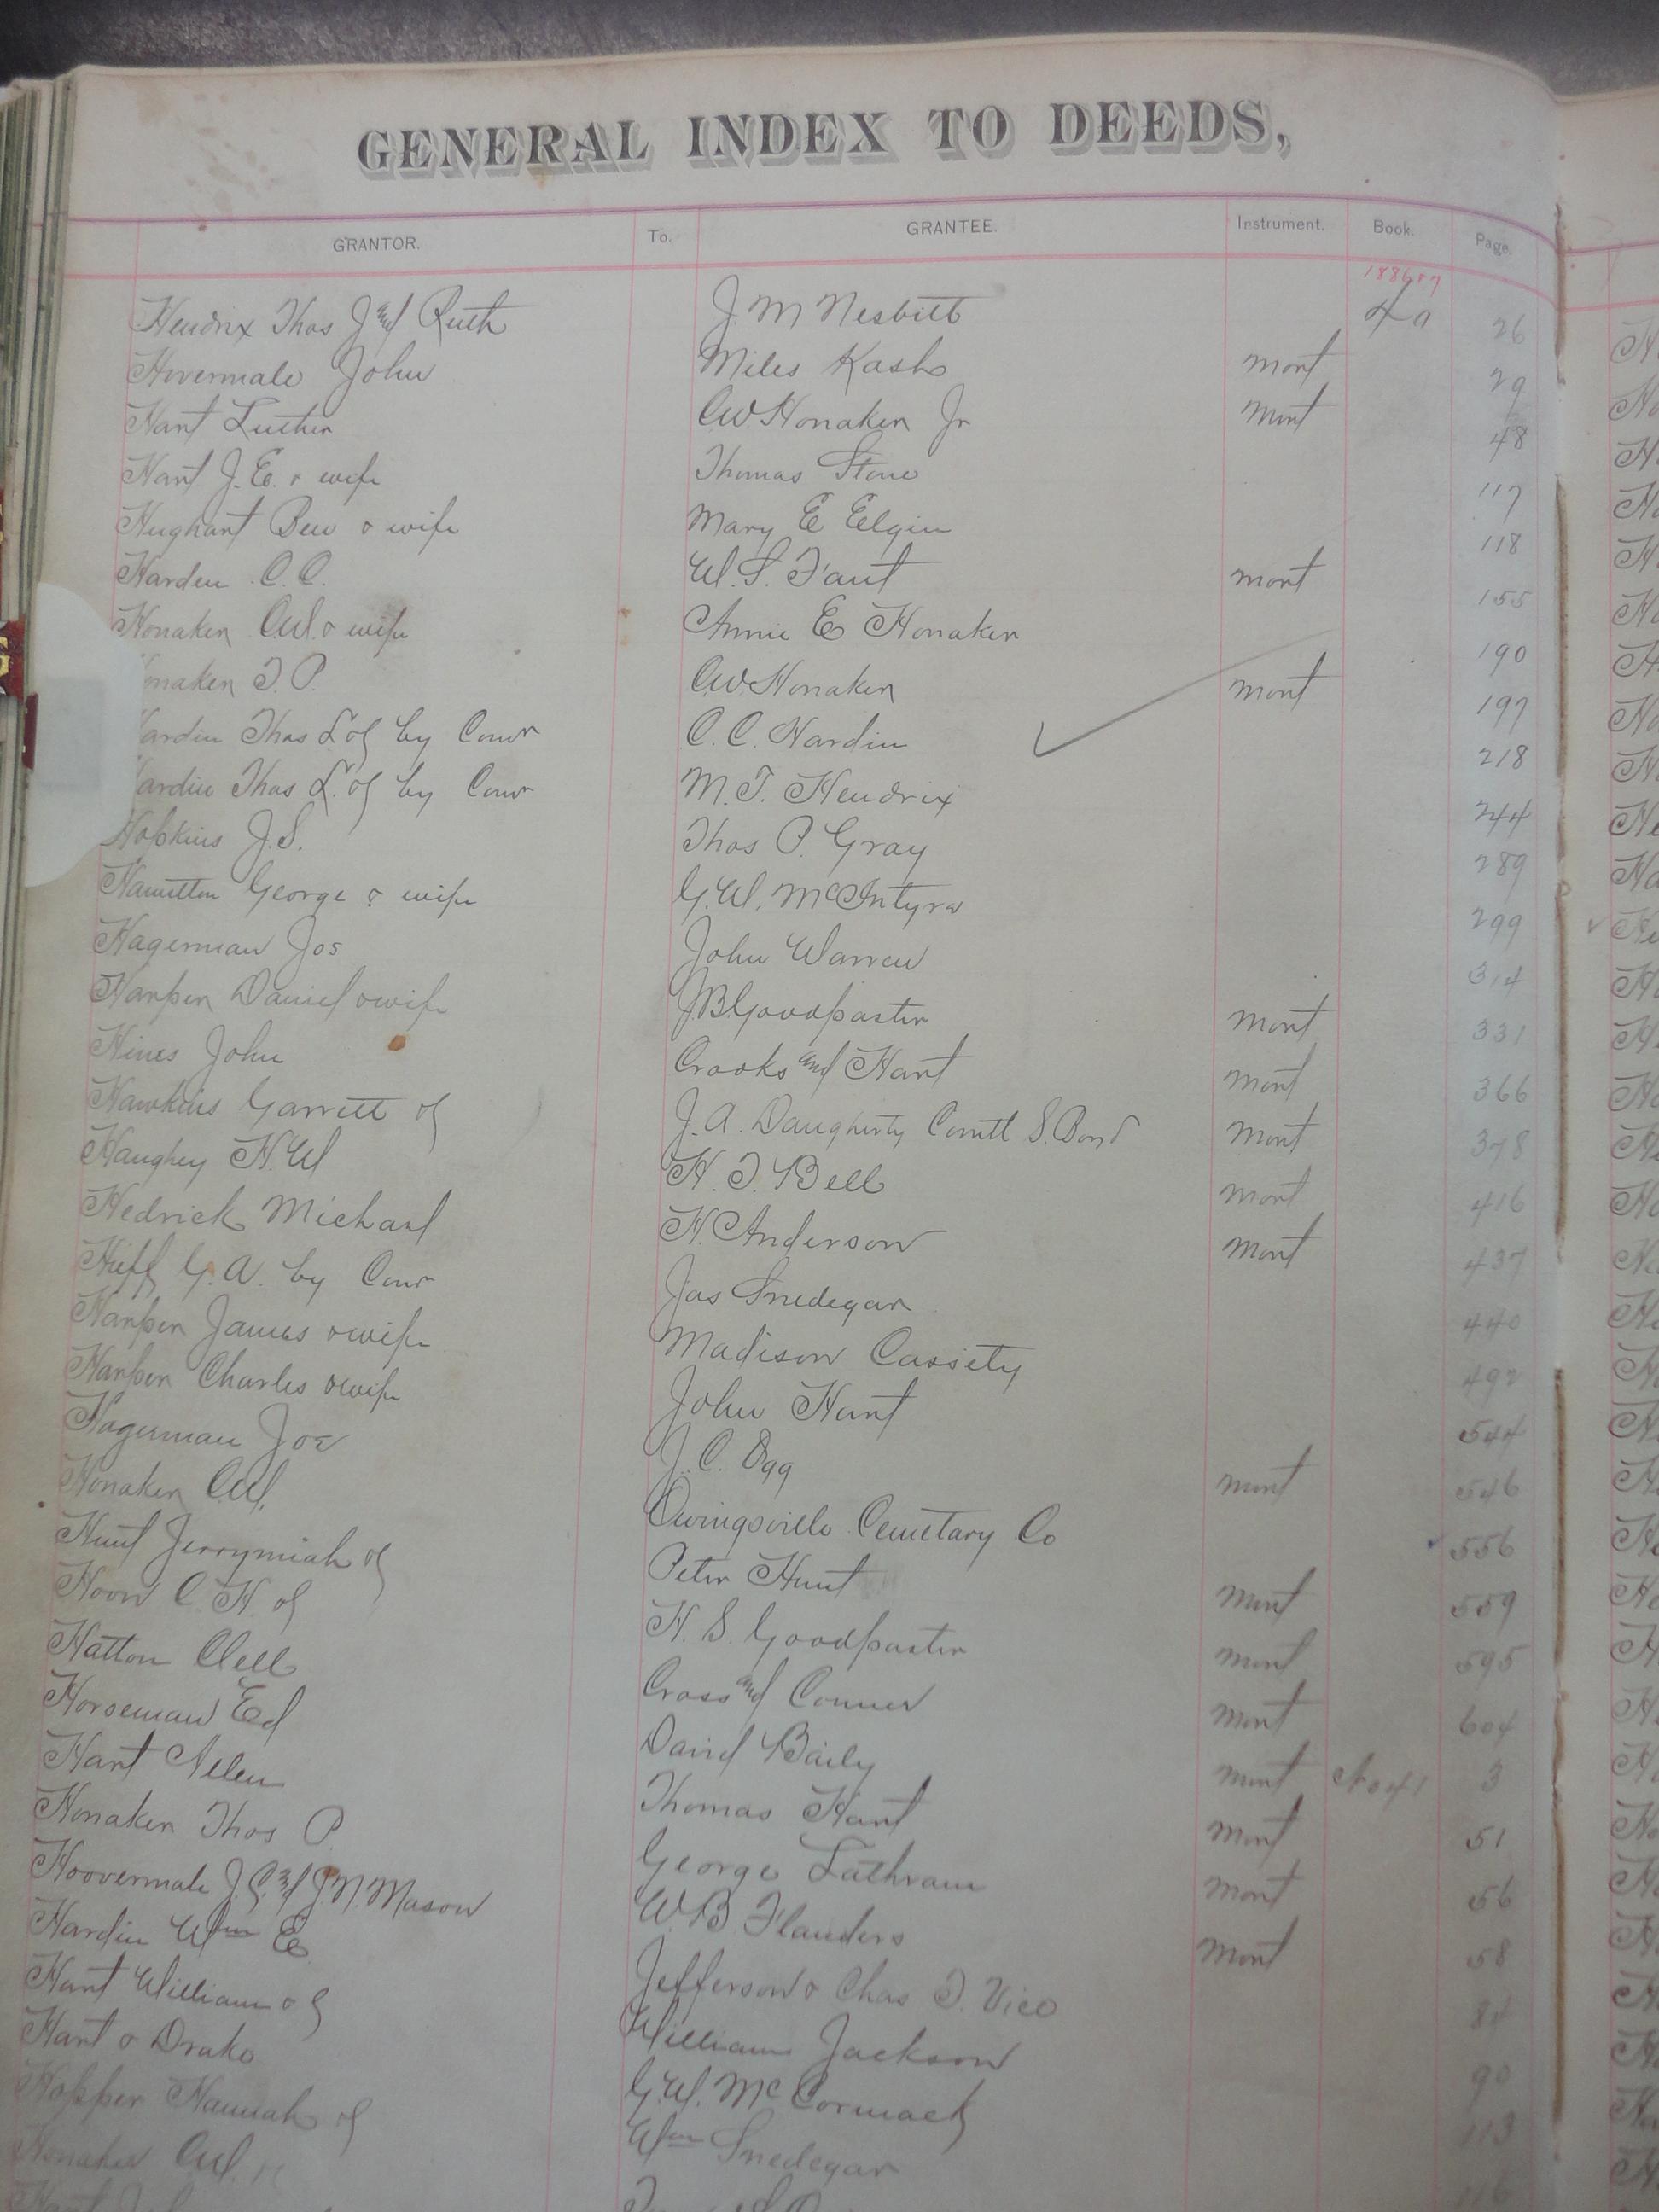 GENERAL INDEX TO DEEDS,
GRANTOR. To. GRANTEE. Instrument. Book. Page.
1886-87
Hendrix Thos J and Ruth J. M Nesbitt 40 26
Hovermale John Miles Kash mort 29
Hart Luther CW Honaker Jr mort 48
Hart J. E. & wife Thomas Stone 117
Hughart Ben & wife Mary E Elgin 118
Harden C. C. W. S. Fant mort 155
Honaker CW. & wife Annie E Honaker 190
onaker T. P. C.W. Honaker mort 197
ardin Thos L of by Comr C. C. Hardin 218
ardin Thos L. of by Comr M. T. Hendrix 244
Hopkins J. S. Thos P. Gray 289
Hamilton George & wife G. W. McIntyre 299
Hagerman Jos John Warren 314
Harper Daniel & wife J B Goodpaster mort 331
Hines John Crooks and Hart mort 366
Hawkins Garrett of J. A. Daugherty Comtt S. Bond mort 378
Haughey H. W H. T. Bell mort 416
Hedrick Michael H. Anderson mort 437
Huff G. A. by Comr Jas Snedegar 440
Harper James & wife Madison Cassity 492
Harper Charles & wife John Hart 544
Hagerman Joe J. C. Ogg mort 546
Honaker CW. Owingsville Cemetary Co 556
Hunt Jerrymiah of Peter Hunt mort 559
Hoon C H of H. S. Goodpaster mort 595
Hatton Clell Cross and Conner mort 604
Horseman Ed David Baily mort No 41 3
Hart Allen Thomas Hart mort 51
Honaker Thos P George Lathram mort 56
Hoovermale J. C. and J. N. Mason W B Flanders mort 58
Hardin Wm E Jefferson & Chas T. Vice 84
Hart William of William Jackson 90
Hart & Drake G. W. McCormack 113
Hopper Hannah of Wm Snedegar 116
Honaker CW.